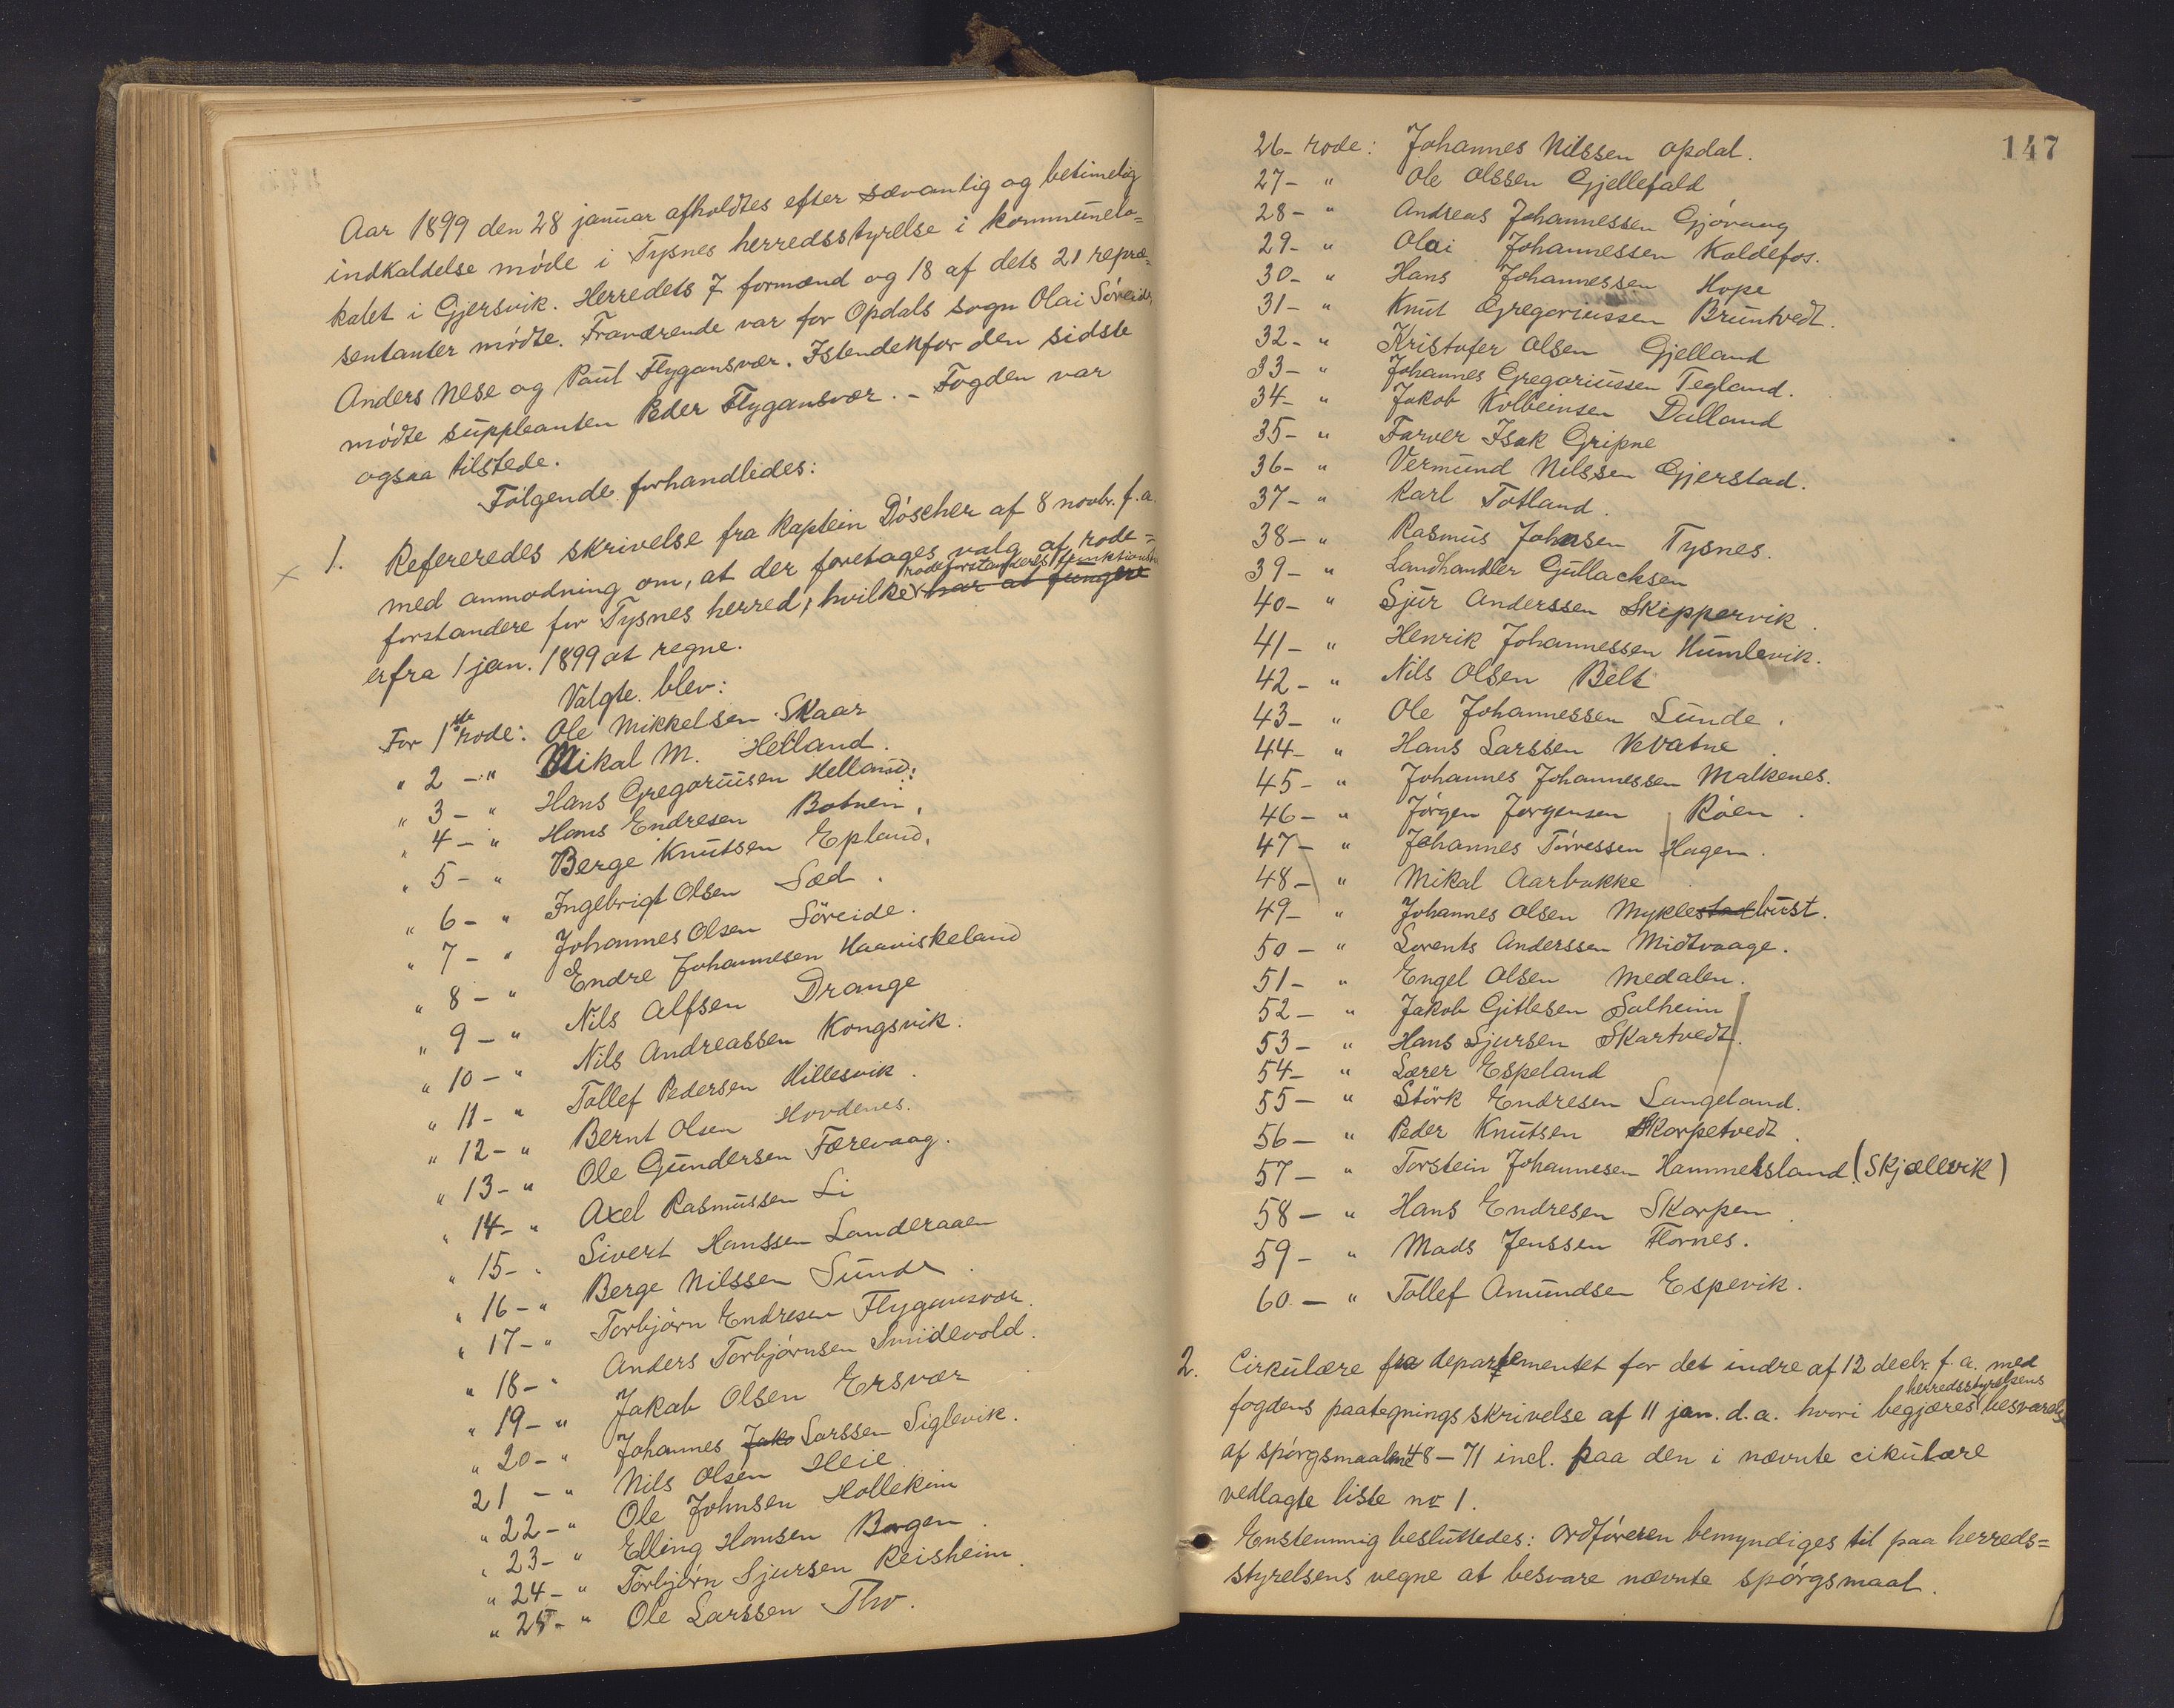 Aar 1899 den 28 januar afholdtes efter sævanlig og betimelig
indkaldelse møde i Tysnes herredsstyrelse i kommunelo=
kalet i Gjersvik. Herredets 7 formænd og 18 af dets 21 repræ=
sentanter mødte. Fraværende var for Opdals sogn Olai Søreide,
Anders Nese og Paul Flygansvær. Istendenfor den sidste
mødte suppleanten Peder Flygansvær. – Fogden var
ogsaa tilstede.
Følgende forhandledes:
1. Refereredes skrivelse fra kaptein Døscher af 8 novbr. f.a.
med anmodning om, at der foretages valg af rode=
forstandere for Tysnes herred, hvilke rodeforstanderes funktionstid har at fungere
er fra 1 jan. 1899 at regne.
Valgte blev:
For 1ste rode: Ole Mikkelsen Skaar
" 2 – " Mikal M. Helland.
" 3 – " Hans Gregoriusen Helland.
" 4 – " Hans Endresen Botnen.
" 5 – " Berge Knutsen Epland.
" 6 – " Ingebrigt Olsen Sæd.
" 7 – " Johannes Olsen Søreide.
" 8 – " Endre Johannesen Haaviskeland
" 9 – " Nils Alfsen Drange
" 10 – " Nils Andreassen Kongsvik.
" 11 – " Tollef Pedersen Hillesvik.
" 12 – " Bernt Olsen Hovdenes.
" 13 – " Ole Gundersen Færevaag.
" 14 – " Axel Rasmussen Li
" 15 – " Sivert Hanssen Landeraaen
" 16 – " Berge Nilssen Sunde
" 17 – " Torbjørn Endresen Flygansvær.
" 18 – " Anders Torbjørnsen Smidevold.
" 19 – " Jakob Olsen Ersvær
" 20 – " Johannes Jako Larssen Siglevik.
21 – " Nils Olsen Heie
" 22 – " Ole Johnsen Hollekim
" 23 – " Elling Hansen Borgen
" 24 – " Torbjørn Sjursen Reisheim.
" 25 – " Ole Larssen Tho.
147
26 – rode: Johannes Nilssen Opdal.
27 – " Ole Olssen Gjellefald
28 – " Andreas Johannessen Gjøvaag
29 – " Olai Johannessen Koldefos.
30 – " Hans Johannessen Hope
31 – " Knut Gregoriussen Bruntvedt.
32 – " Kristofer Olsen Gjelland
33 – " Johannes Gregoriussen Tegland.
34 – " Jakob Kolbeinsen Dalland
35 – " Farver Isak Gripne
36 – " Vermund Nilssen Gjerstad.
37 – " Karl Totland.
38 – " Rasmus Johnsen Tysnes.
39 – " Landhandler Gullacksen
40 – " Sjur Anderssen Skippervik.
41 – " Henrik Johannessen Humlevik.
42 – " Nils Olsen Belt
43 – " Ole Johannessen Lunde.
44 – " Hans Larssen Vevatne.
45 – " Johannes Johannessen Malkenes.
46 – " Jørgen Jørgensen Røen.
47 – " Johannes Tørressen Hagen.
48 – " Mikal Aarbakke
49 – " Johannes Olsen Myklestadbust.
50 – " Lorents Anderssen Midtvaage.
51 – " Engel Olsen Medalen.
52 – " Jakob Gitlesen Solheim
53 – " Hans Sjursen Skartvedt.
54 – " Lærer Espeland
55 – " Störk Endresen Langeland.
56 – " Peder Knutsen Skorpetvedt.
57 – " Torstein Johannesen Hammelsland. (Skjællevik)
58 – " Hans Endresen Skorpen.
59 – " Mads Jenssen Flornes.
60 – " Tollef Amundsen Espevik.
2. Cirkulære fra departementet for det indre af 12 decbr. f.a. med
fogdens paategningsskrivelse af 11 jan. d.a. hvori begjæres herredsstyrelsens besvarelse
af spørgsmaalene 48 – 71 incl. paa den i nævnte cikulære
vedlagte liste no 1.
Enstemmig besluttedes: Ordføreren bemyndiges til paa herreds=
styrelsens vegne at besvare nævnte spørgsmaal.